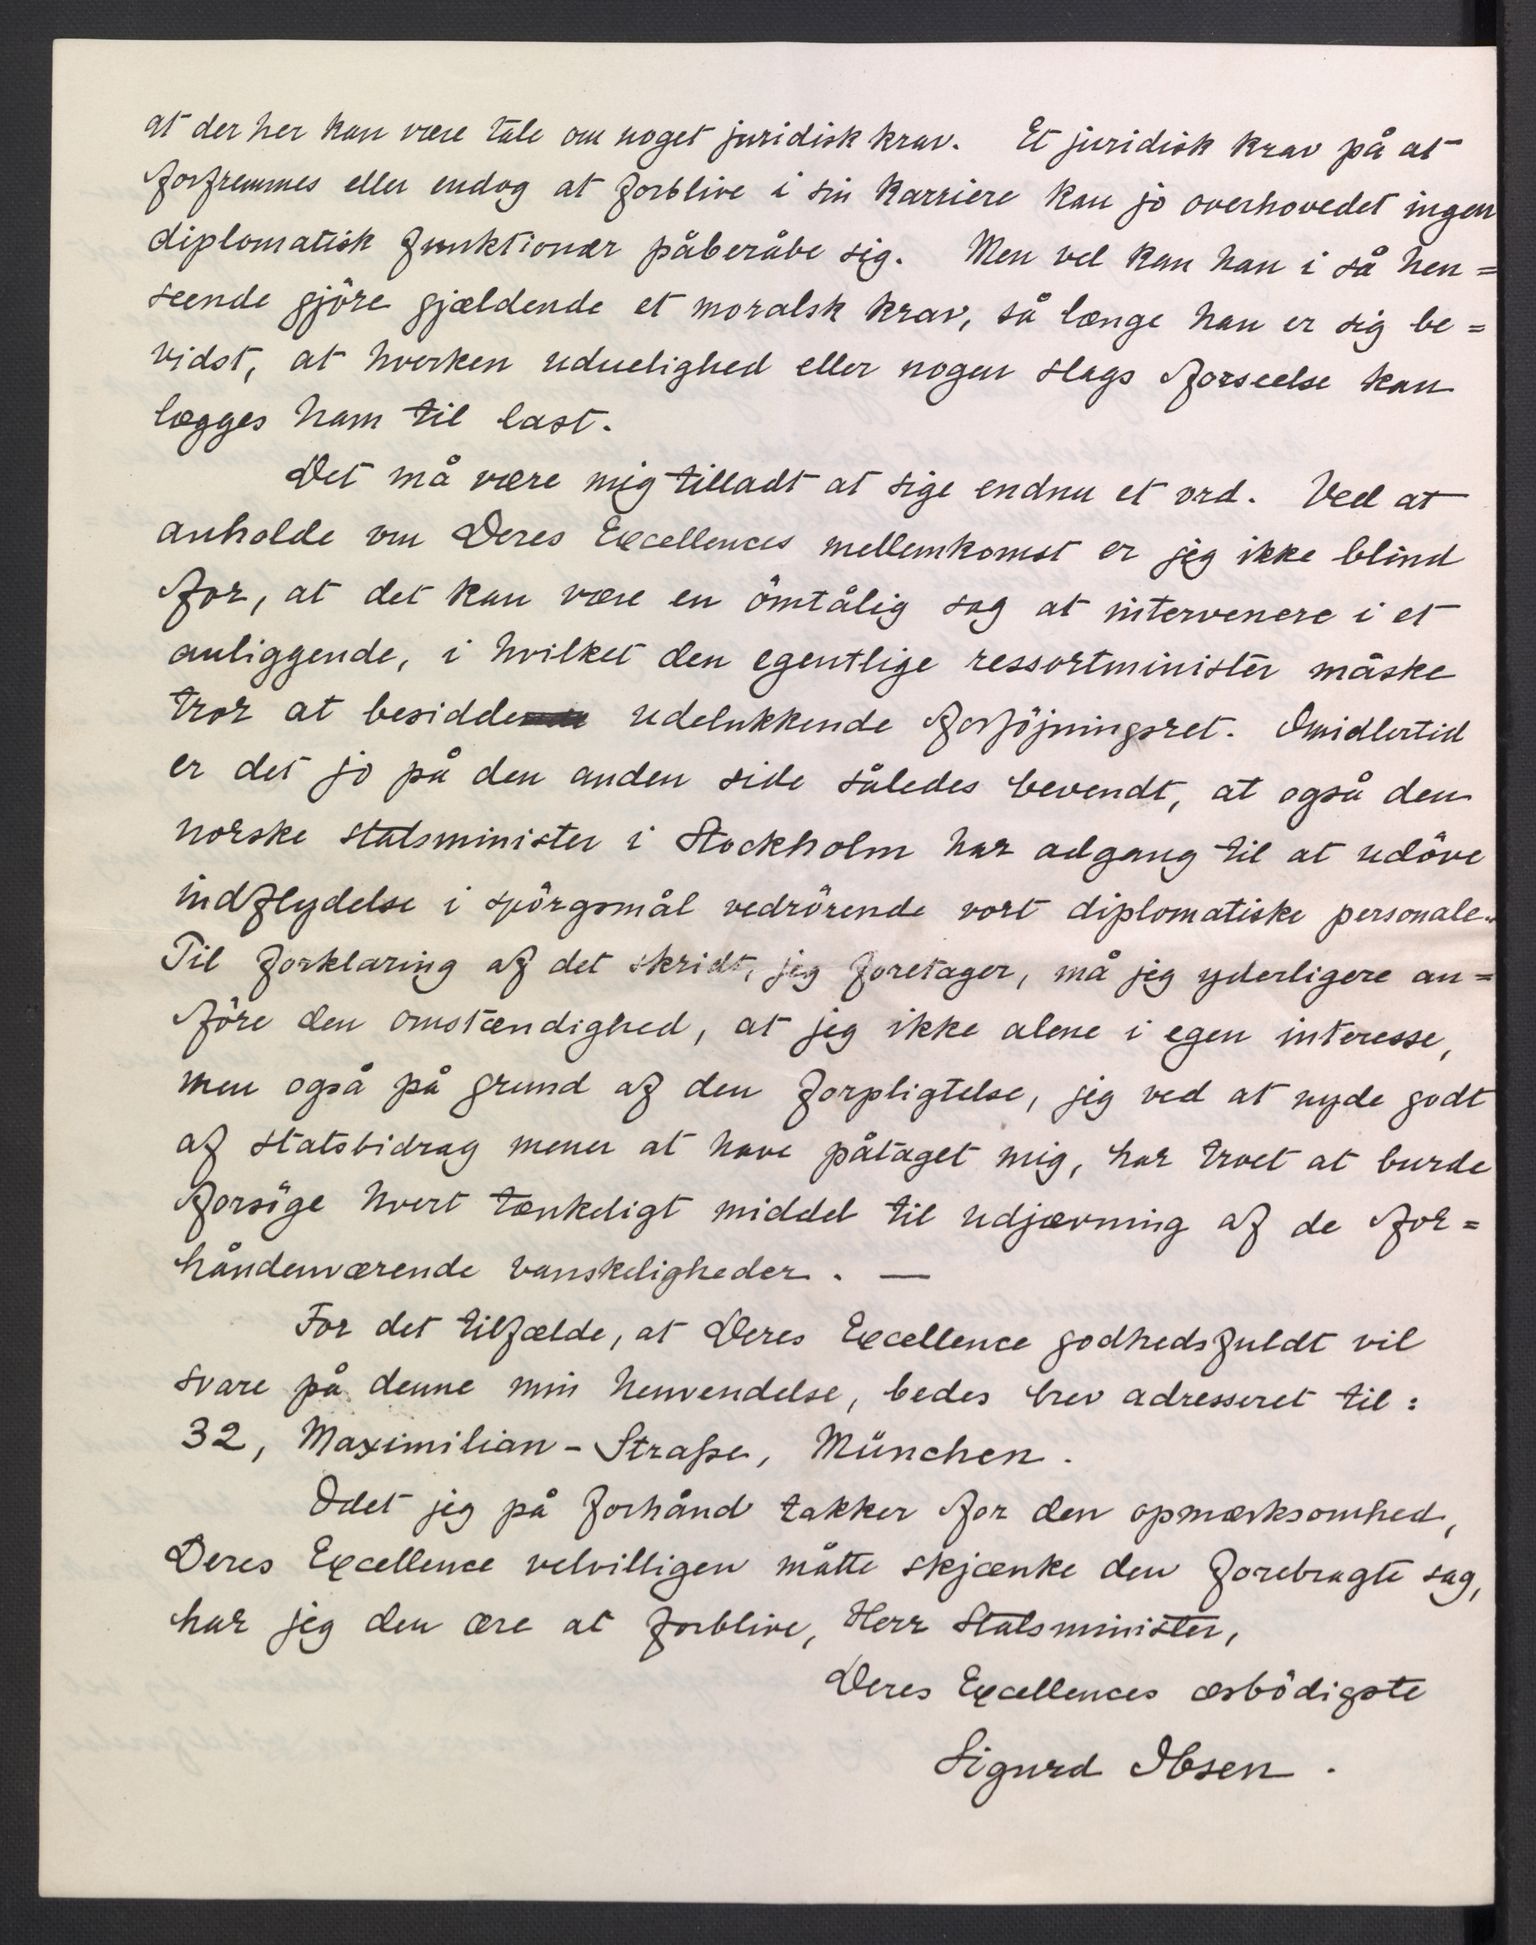 at der her kan være tale om noget juridisk krav. Et juridisk krav på at
forfremmes eller endog at forblive i sin karriere kan jo overhovedet ingen
diplomatisk funktionær påberåbe sig. Men vel kan han i så hen=
seende gjöre gjældende et moralsk krav, så længe han er sig be=
vidst, at hverken uduelighed eller nogen slags forseelse kan
lægges ham til last.
Det må være mig tilladt at sige endnu et ord. Ved at
anholde om Deres Excellences mellemkomst er jeg ikke blind
for, at det kan være en ömtålig sag at intervenere i et
anliggende, i hvilket den egentlige ressortminister måske
tror at besidde udelukkende forföjningsret. Imidlertid
er det jo på den anden side således bevendt, at også den
norske statsminister i Stockholm har adgang til at udöve
indflydelse i spörgsmål vedrörende vort diplomatiske personale.
Til forklaring af det skridt, jeg foretager, må jeg yderligere an=
före den omstændighed, at jeg ikke alene i egen interesse,
men også på grund af den forpligtelse, jeg ved at nyde godt
af statsbidrag mener at have påtaget mig, har troet at burde
forsöge hvert tænkeligt middel til udjævning af de for=
håndenværende vanskeligheder. —
For det tilfælde, at Deres Excellence godhedsfuldt vil
svare på denne min henvendelse, bedes brev adresseret til:
32, Maximilian-Straße, München.
Idet jeg på forhånd takker for den opmærksomhed,
Deres Excellence velvilligen måtte skjænke den forebragte sag,
har jeg den ære at forblive, Herr Statsminister,
Deres Excellences ærbödigste
Sigurd Ibsen.